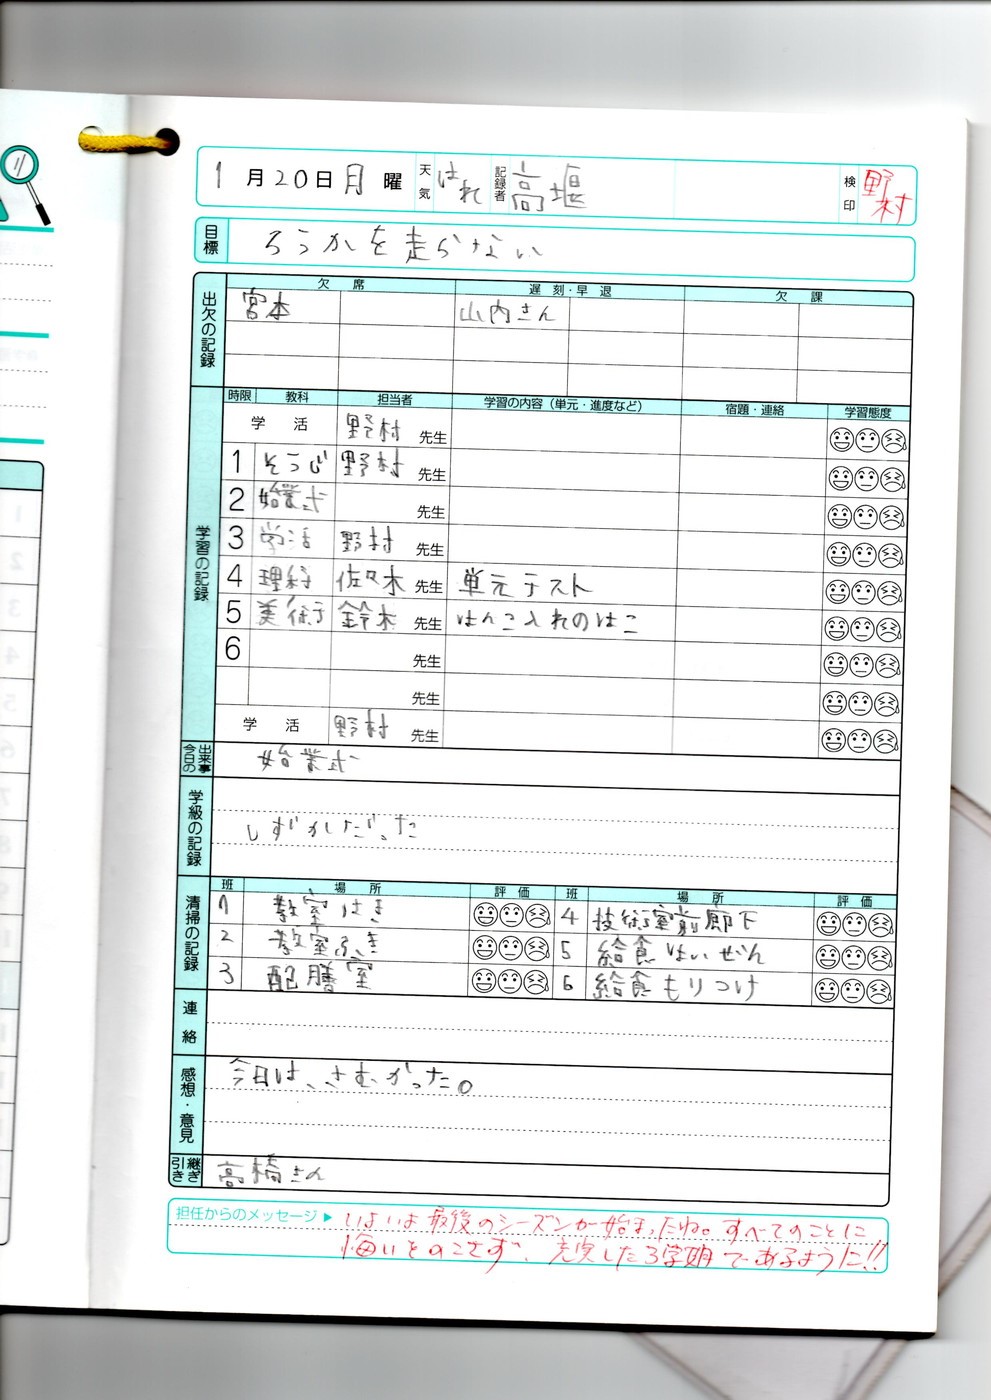 1月20日月曜 天気 はれ 記録者 高堰 検印 野村
目標 ろうかを走らない
出欠の記録 欠席 遅刻・早退 欠課
宮本 山内さん
学習の記録 時限 教科 担当者 学習の内容(単元・進度など) 宿題・連絡 学習態度
学活 野村先生
1 そうじ 野村先生
2 始業式 先生
3 学活 野村先生
4 理科 佐々木先生 単元テスト
5 美術 鈴木先生 はんこ入れのはこ
6 先生
先生
学活 野村先生
今日の出来事 始業式
学級の記録
しずかだった
清掃の記録 班 場所 評価 班 場所 評価
1 教室はき 4 技術室前廊下
2 教室ふき 5 給食はいぜん
3 配膳室 6 給食もりつけ
連絡
感想・意見 今日は、さむかった。
引き継ぎ 高橋さん
担任からのメッセージ▶ いよいよ最後のシーズンが始まったね。すべてのことに
悔いをのこさず、充実した3学期であるように!!